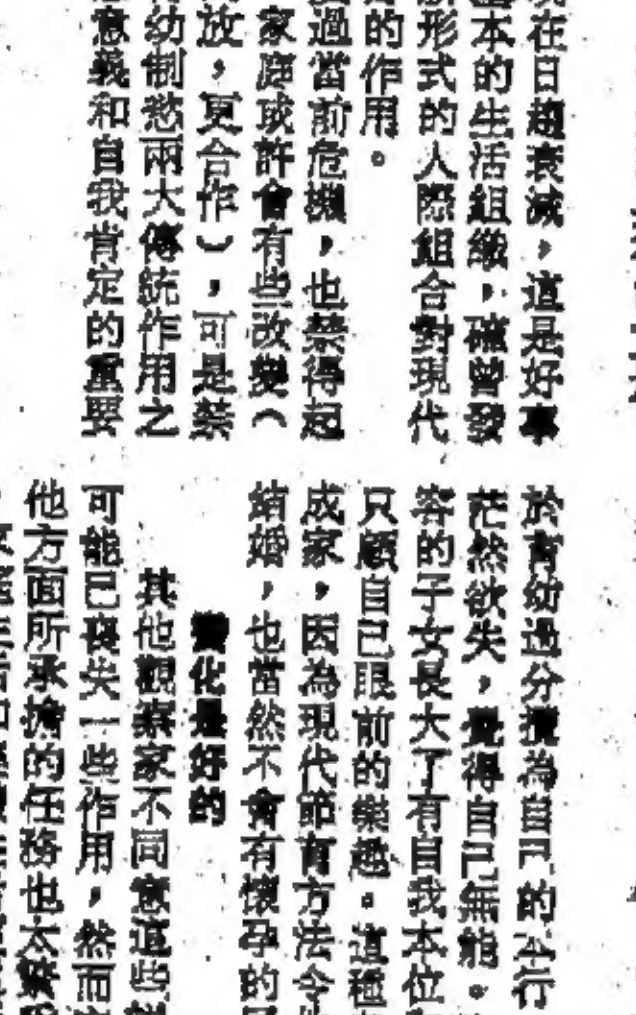 現在日趨衰減，這是好事
基本的生活組織，確曾發
形式的人際組合對現代
的作用。
過當前危機，也禁得起
家庭或許會有些改變（
放，更合作），可是禁
幼制慾兩大傳統作用之
意義和自我肯定的重要
於育幼過分攬為自己的本行
茫然欲失，覺得自己無能。
客的子女長大了有自我本位
只顧自己眼前的樂趣。這種
成家，因為現代節育方法令
結婚，也當然不會有懷孕的
變化是好的
其他觀察家不同意這些
可能已喪失一些作用，然而
他方面所承擔的任務也太繁